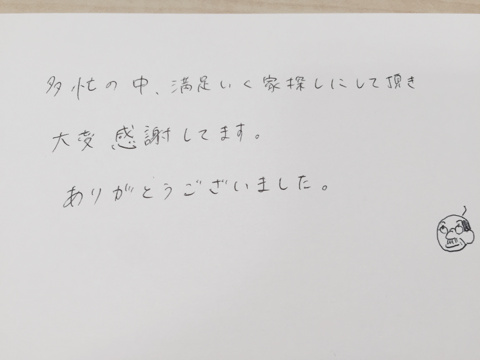 多忙の中、満足いく家探しにして頂き
大変感謝してます。
ありがとうございました。